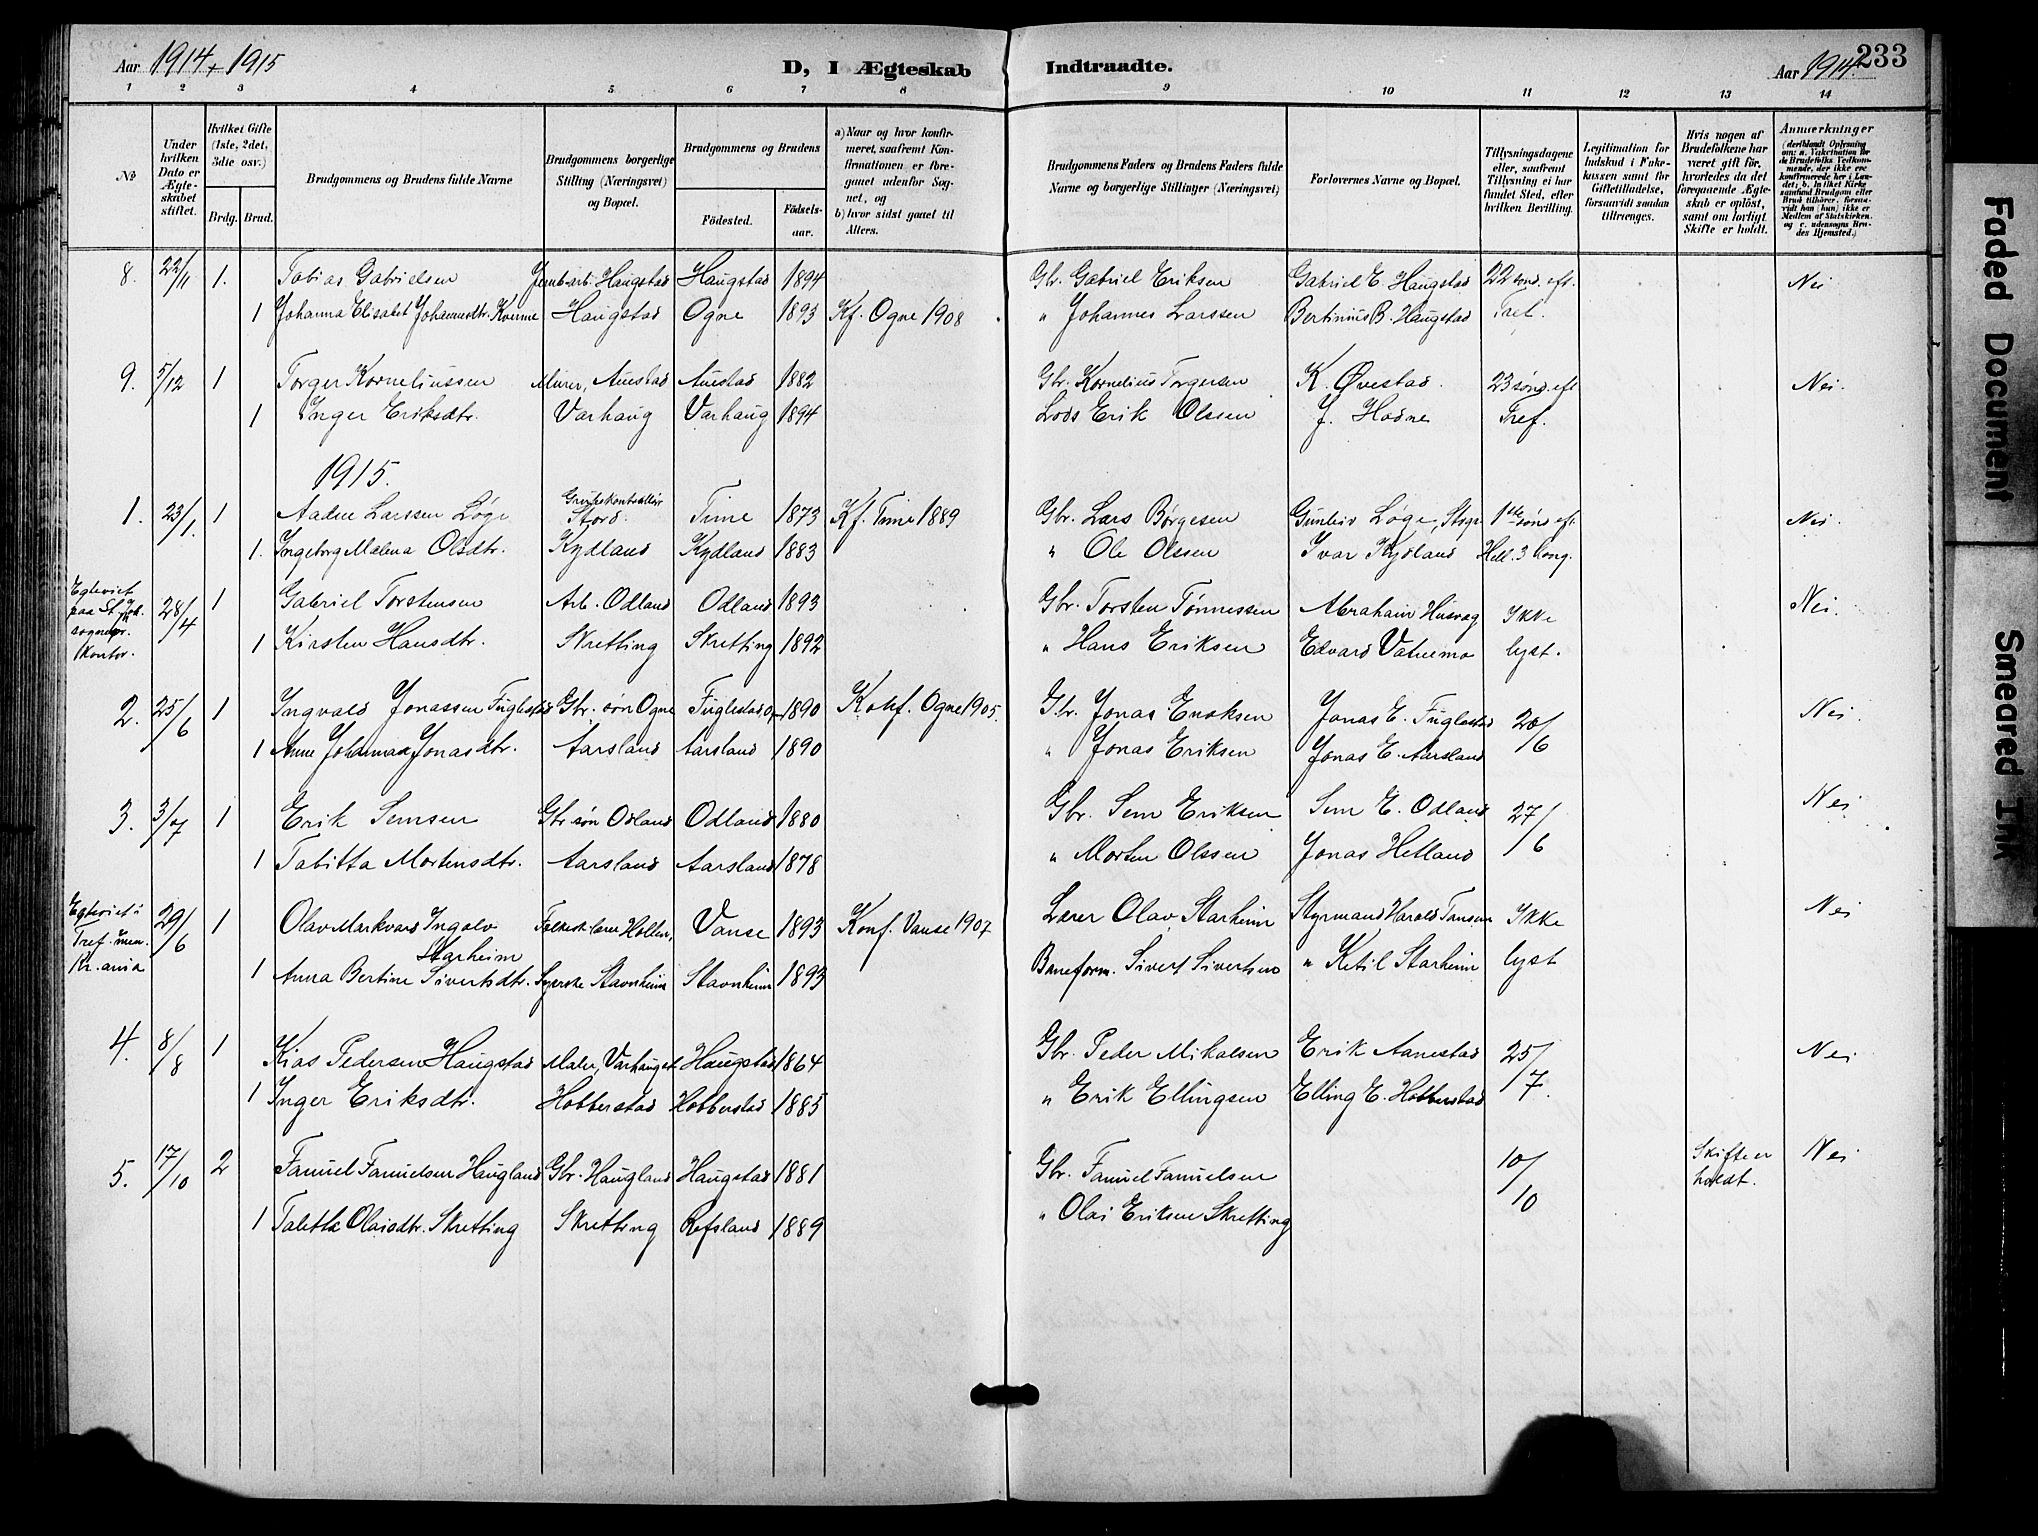 Aar 1914 + 1915
D, I Ægteskab Indtraadte.
Aar 1914. 233
1 2 3 4 5 6 7 8 9 10 11 12 13 14
No
Under hvilken Dato er Ægteskabet stiftet.
Hvilket Gifte (1ste, 2det, 3die osv.)
Brdg. Brud.
Brudgommens og Brudens fulde Navne
Brudgommens borgerlige Stilling (Næringsvei) og Bopæl.
Brudgommens og Brudens
Fødested. Fødsels-aar.
a) Naar og hvor konfirmeret, saafremt Konfirmationen er foregaaet udenfor Sognet, og
b) hvor sidst gaaet til Alters.
Brudgommens Faders og Brudens Faders fulde Navne og borgerlige Stillinger (Næringsvei)
Forlovernes Navne og Bopæl.
Tillysningsdagene eller, saafremt Tillysning ei har fundet Sted, efter hvilken Bevilling.
Legitimation for Indskud i Enkekassen samt for Giftetilladelse, forsaavidt saadan tiltrænges.
Hvis nogen af Brudefolkene har været gift før, hvorledes da det foregaaende Ægteskab er opløst, samt om lovligt Skifte er holdt.
Anmerkninger (deriblandt Oplysning om: a. Vakcination for de Brudefolks Vedkommende, der ikke ere konfirmerede her i Landet; b. hvilket Kirkesamfund Brudgom eller Brud tilhører, forsaavidt han (hun) ikke er Medlem af Statskirken, og c. udensogns Brudes Hjemsted.)
8. 22/11 1. Tobias Gabrielsen Jernb.arb. Haugstad Haugstad 1894 Gbr. Gabriel Eriksen Gabriel E. Haugstad 22 sønd. eft. Nei
1 Johanna Elisabet Johannesdtr. Kverme Haugstad Ogne 1893 Kf. Ogne 1908 " Johannes Larssen Bertinius B. Haugstad Tref.
9. 5/12 1 Torger Korneliussen Murer, Auestad Auestad 1882 Gbr. Kornelius Torgersen K. Øvestad. 23 sønd. eft Nei.
1 Inger Eriksdtr. Varhaug Varhaug 1894 Lods Erik Olssen J. Hodne Tref.
1915.
1. 23/1. 1 Aadne Larssen Løge Stord. Time 1873 Kf. Time 1889 Gbr. Lars Børgesen Gunleiv Løge, 1ste sønd eft. Nei
1. Ingeborg Malena Olsdtr. Kydland Kydland 1883 " Ole Olssen Ivar Kydland Hell. 3 kong.
Egteviet paa sognepr. kontor.
28/4 1 Gabriel Torstensen Arb. Odland Odland 1893 Gbr. Torsten Tønnessen Abraham Husvæg Ikke Nei.
1 Kirsten Hansdtr. Skretting Skretting 1892 " Hans Eriksen Edvard Vatnemo lyst.
2. 25/6 1 Ingvald Jonassen Fuglestad Gbr. søn Ogne Fuglestad O. 1890 Konf. Ogne 1905. Gbr. Jonas Enoksen Jonas E. Fuglestad 20/6 Nei.
1 Anne Johanna Jonasdtr. Aarsland Aarsland 1890 " Jonas Eriksen Jonas E. Aarsland
3. 3/7 1 Erik Semsen Gbr søn Odland Odland 1880 Gbr. Sem Eriksen Sem E. Odland 27/6 Nei
1 Tabitta Mortensdtr. Aarsland Aarsland 1878 " Morten Olssen Jonas Hetland
Egteviet i Tref. men. Kr.ania
29/6 1 Olav Markvard Ingolv Starheim Vanse 1893 Konf. Vanse 1907 Lærer Olav Starheim Styrmand Harald Ikke Nei
1 Anna Bertine Sivertsdtr. Syerske Stavnheim Stavnheim 1893 Baneform. Sivert Sivertsen " Ketil Starheim lyst
4. 8/8 1 Kias Pedersen Haugstad Maler, Varhaug Haugstad 1864 Gbr. Peder Mikalsen Erik Aanestad 25/7. Nei
1 Inger Eriksdtr. Hobberstad Hobberstad 1885 " Erik Ellingsen Elling E. Hobberstad
5. 17/10 2 Famuel Famuelsen Haugland Gbr. Haugland Haugstad 1881 Gbr. Famuel Famuelsen 10/10 Skifte er holdt. Nei
1 Taletta Olaisdtr. Skretting Skretting Refsland 1889 " Olai Eriksen Skretting
Faded Document
Smeared Ink